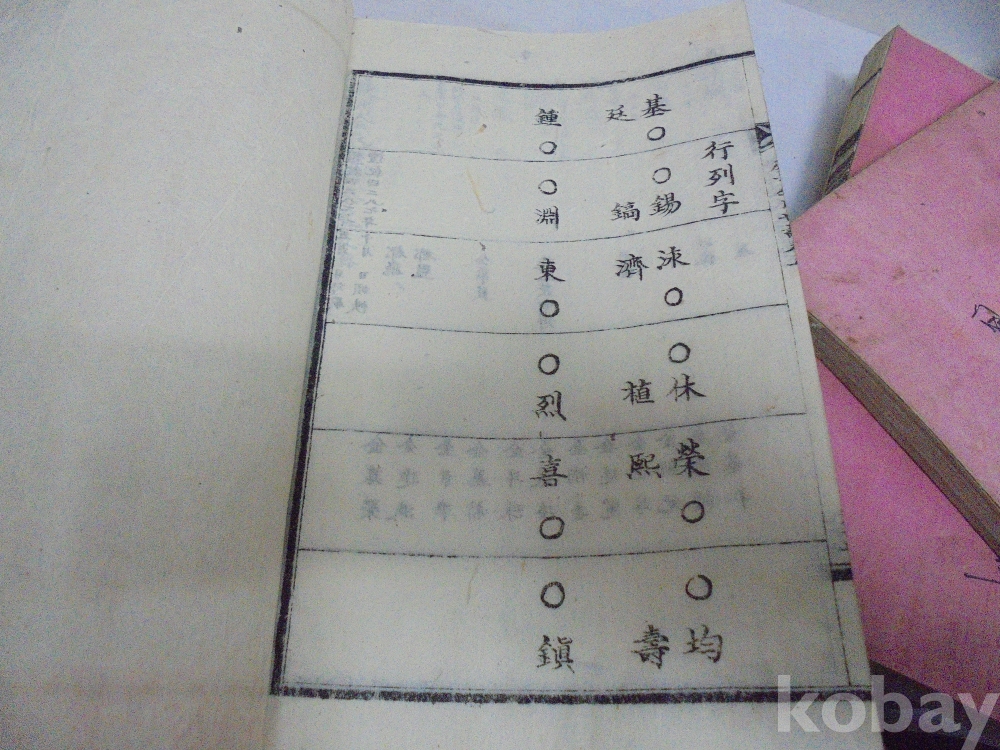 行列字
基○ ○錫 洙○ ○休 榮○ ○均
廷 鎬 濟 植 熙 壽
鍾○ ○淵 東○ ○烈 喜○ ○鎭
kobay